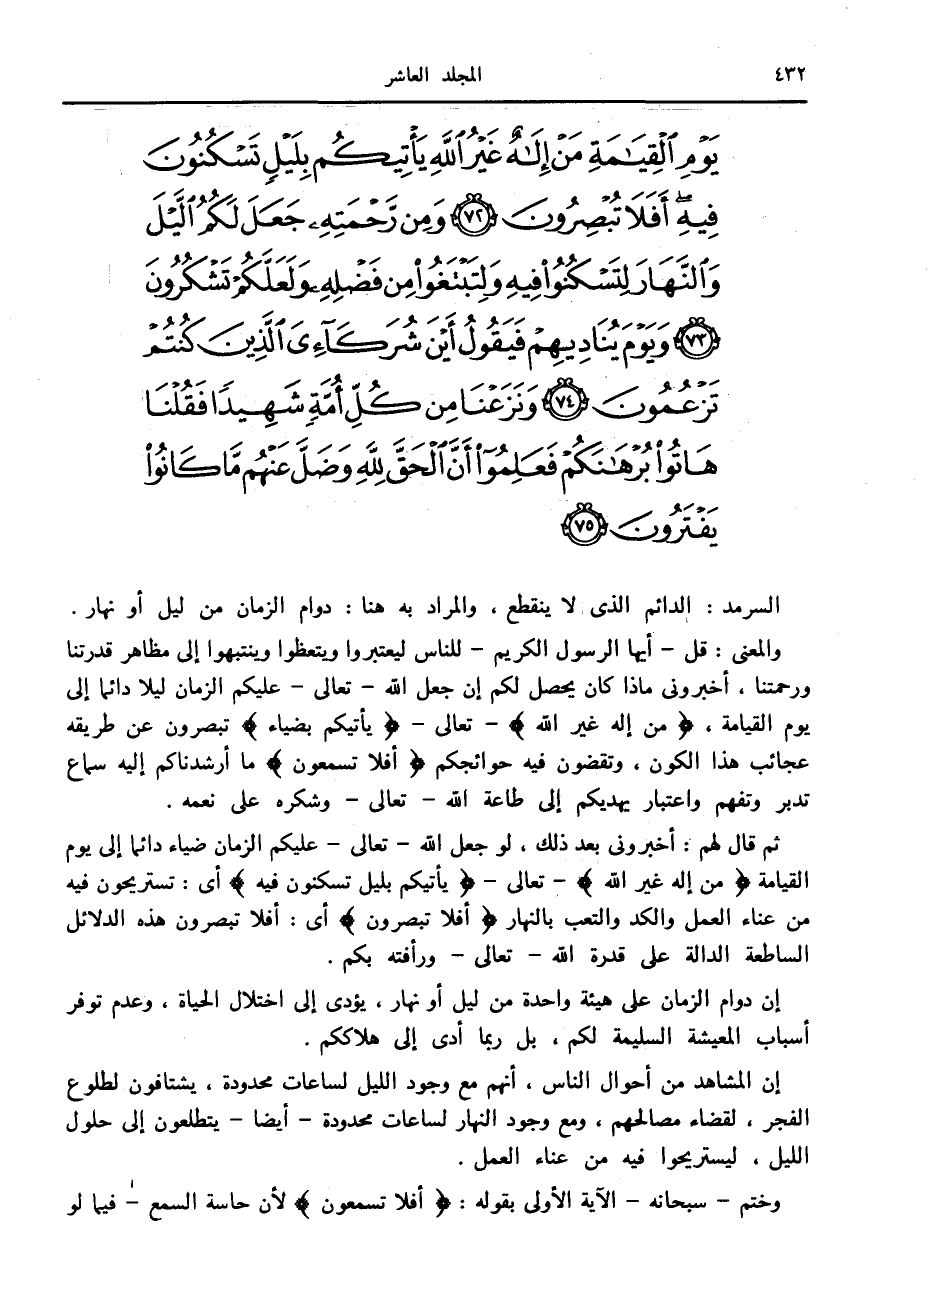 ٤٣٢ المجلد العاشر
يَوْمِ ٱلْقِيَٰمَةِ مَنْ إِلَٰهٌ غَيْرُ ٱللَّهِ يَأْتِيكُم بِلَيْلٍ تَسْكُنُونَ
فِيهِ ۖ أَفَلَا تُبْصِرُونَ ﴿٧٢﴾ وَمِن رَّحْمَتِهِۦ جَعَلَ لَكُمُ ٱلَّيْلَ
وَٱلنَّهَارَ لِتَسْكُنُوا۟ فِيهِ وَلِتَبْتَغُوا۟ مِن فَضْلِهِۦ وَلَعَلَّكُمْ تَشْكُرُونَ
﴿٧٣﴾ وَيَوْمَ يُنَادِيهِمْ فَيَقُولُ أَيْنَ شُرَكَآءِىَ ٱلَّذِينَ كُنتُمْ
تَزْعُمُونَ ﴿٧٤﴾ وَنَزَعْنَا مِن كُلِّ أُمَّةٍ شَهِيدًا فَقُلْنَا
هَاتُوا۟ بُرْهَٰنَكُمْ فَعَلِمُوٓا۟ أَنَّ ٱلْحَقَّ لِلَّهِ وَضَلَّ عَنْهُم مَّا كَانُوا۟
يَفْتَرُونَ ﴿٧٥﴾
السرمد : الدائم الذى لا ينقطع ، والمراد به هنا : دوام الزمان من ليل أو نهار .
والمعنى : قل – أيها الرسول الكريم – للناس ليعتبروا ويتعظوا وينتبهوا إلى مظاهر قدرتنا
ورحمتنا ، أخبرونى ماذا كان يحصل لكم إن جعل الله – تعالى – عليكم الزمان ليلا دائما إلى
يوم القيامة ، ﴿ من إله غير الله ﴾ – تعالى – ﴿ يأتيكم بضياء ﴾ تبصرون عن طريقه
عجائب هذا الكون ، وتقضون فيه حوائجكم ﴿ أفلا تسمعون ﴾ ما أرشدناكم إليه سماع
تدبر وتفهم واعتبار يهديكم إلى طاعة الله – تعالى – وشكره على نعمه .
ثم قال لهم : أخبرونى بعد ذلك ، لو جعل الله – تعالى – عليكم الزمان ضياء دائما إلى يوم
القيامة ﴿ من إله غير الله ﴾ – تعالى – ﴿ يأتيكم بليل تسكنون فيه ﴾ أى : تستريحون فيه
من عناء العمل والكد والتعب بالنهار ﴿ أفلا تبصرون ﴾ أى : أفلا تبصرون هذه الدلائل
الساطعة الدالة على قدرة الله – تعالى – ورأفته بكم .
إن دوام الزمان على هيئة واحدة من ليل أو نهار ، يؤدى إلى اختلال الحياة ، وعدم توفر
أسباب المعيشة السليمة لكم ، بل ربما أدى إلى هلاككم .
إن المشاهد من أحوال الناس ، أنهم مع وجود الليل لساعات محدودة ، يشتاقون لطلوع
الفجر ، لقضاء مصالحهم ، ومع وجود النهار لساعات محدودة – أيضا – يتطلعون إلى حلول
الليل ، ليستريحوا فيه من عناء العمل .
وختم – سبحانه – الآية الأولى بقوله : ﴿ أفلا تسمعون ﴾ لأن حاسة السمع – فيما لو